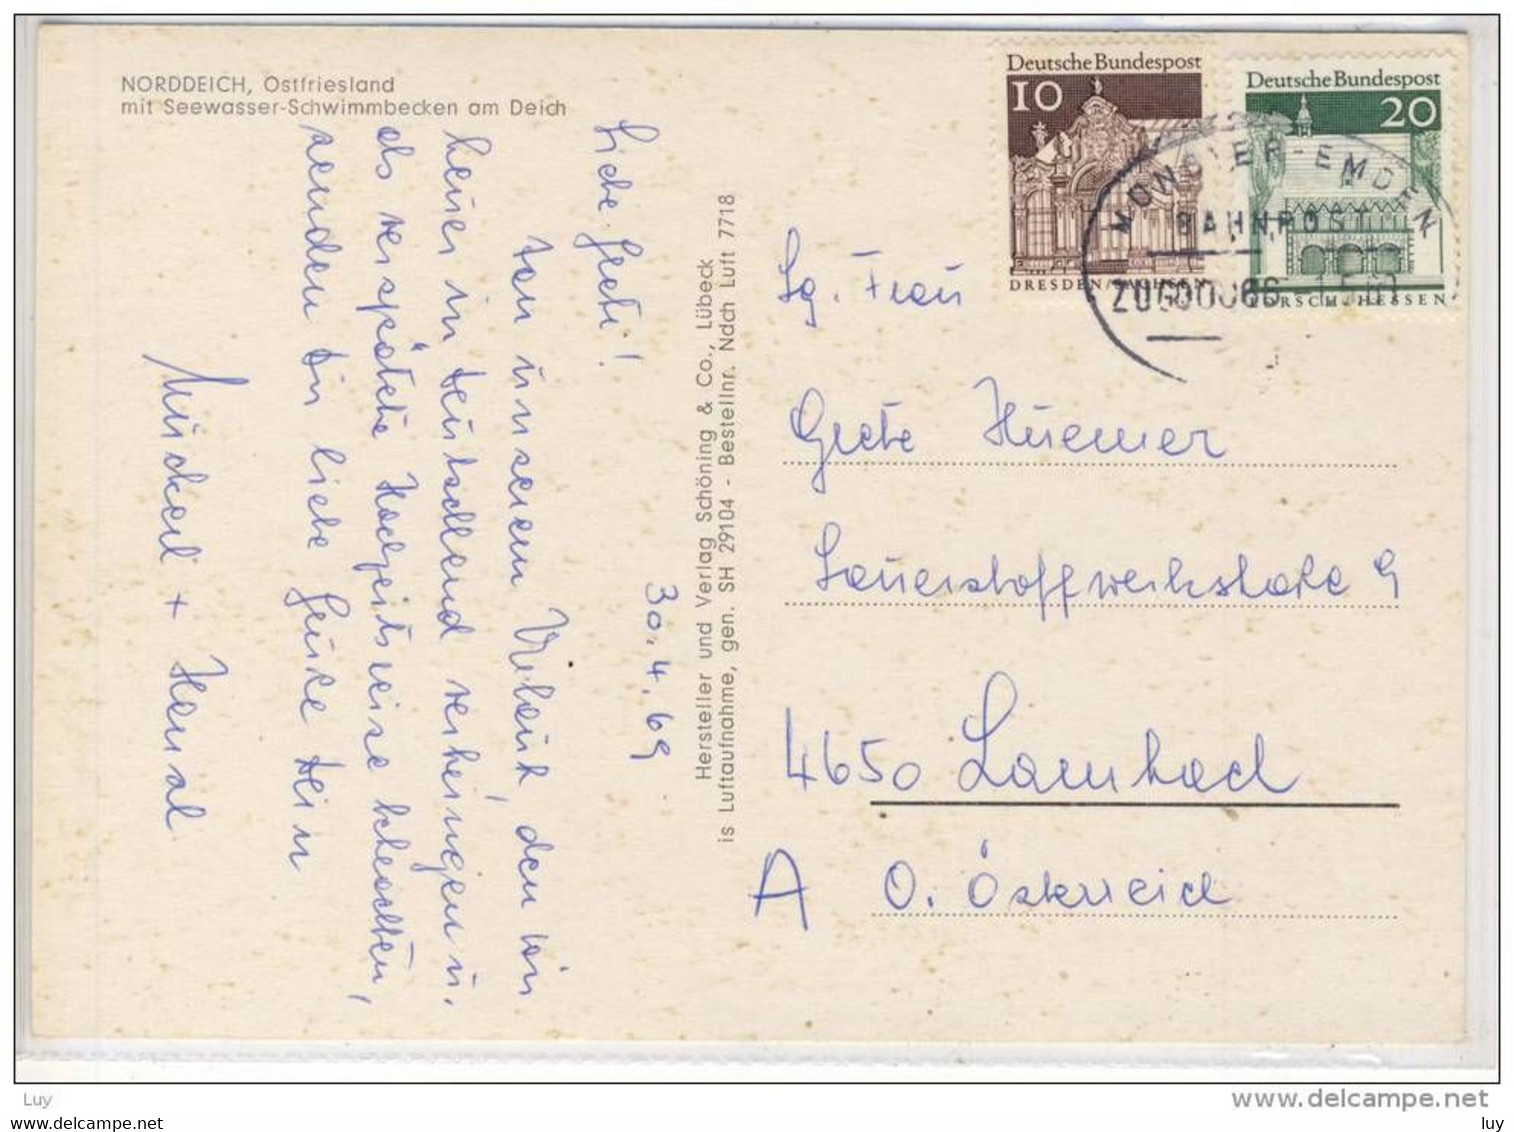 NORDDEICH, Ostfriesland
mit Seewasser-Schwimmbecken am Deich
30.4.69
Liebe Greti!
Von unserem Urlaub, den wir
heuer in Deutschland verbringen u.
als verspätete Hochzeitsreise betrachten,
senden Dir liebe Grüße Dein
+ Hansal
Hersteller und Verlag Schöning & Co., Lübeck
is Luftaufnahme, gen. SH 29104 - Bestellnr. Ndch Luft 7718
Deutsche Bundespost
10
DRESDEN/SACHSEN
Deutsche Bundespost
20
LORSCH/HESSEN
MÜNSTER-EMDEN
BAHNPOST
Sg. Frau
Grete Huemer
Sauerstoffwerkstraße 9
4650 Lambach
A O. Österreich
Luy
delcampe.net
luy